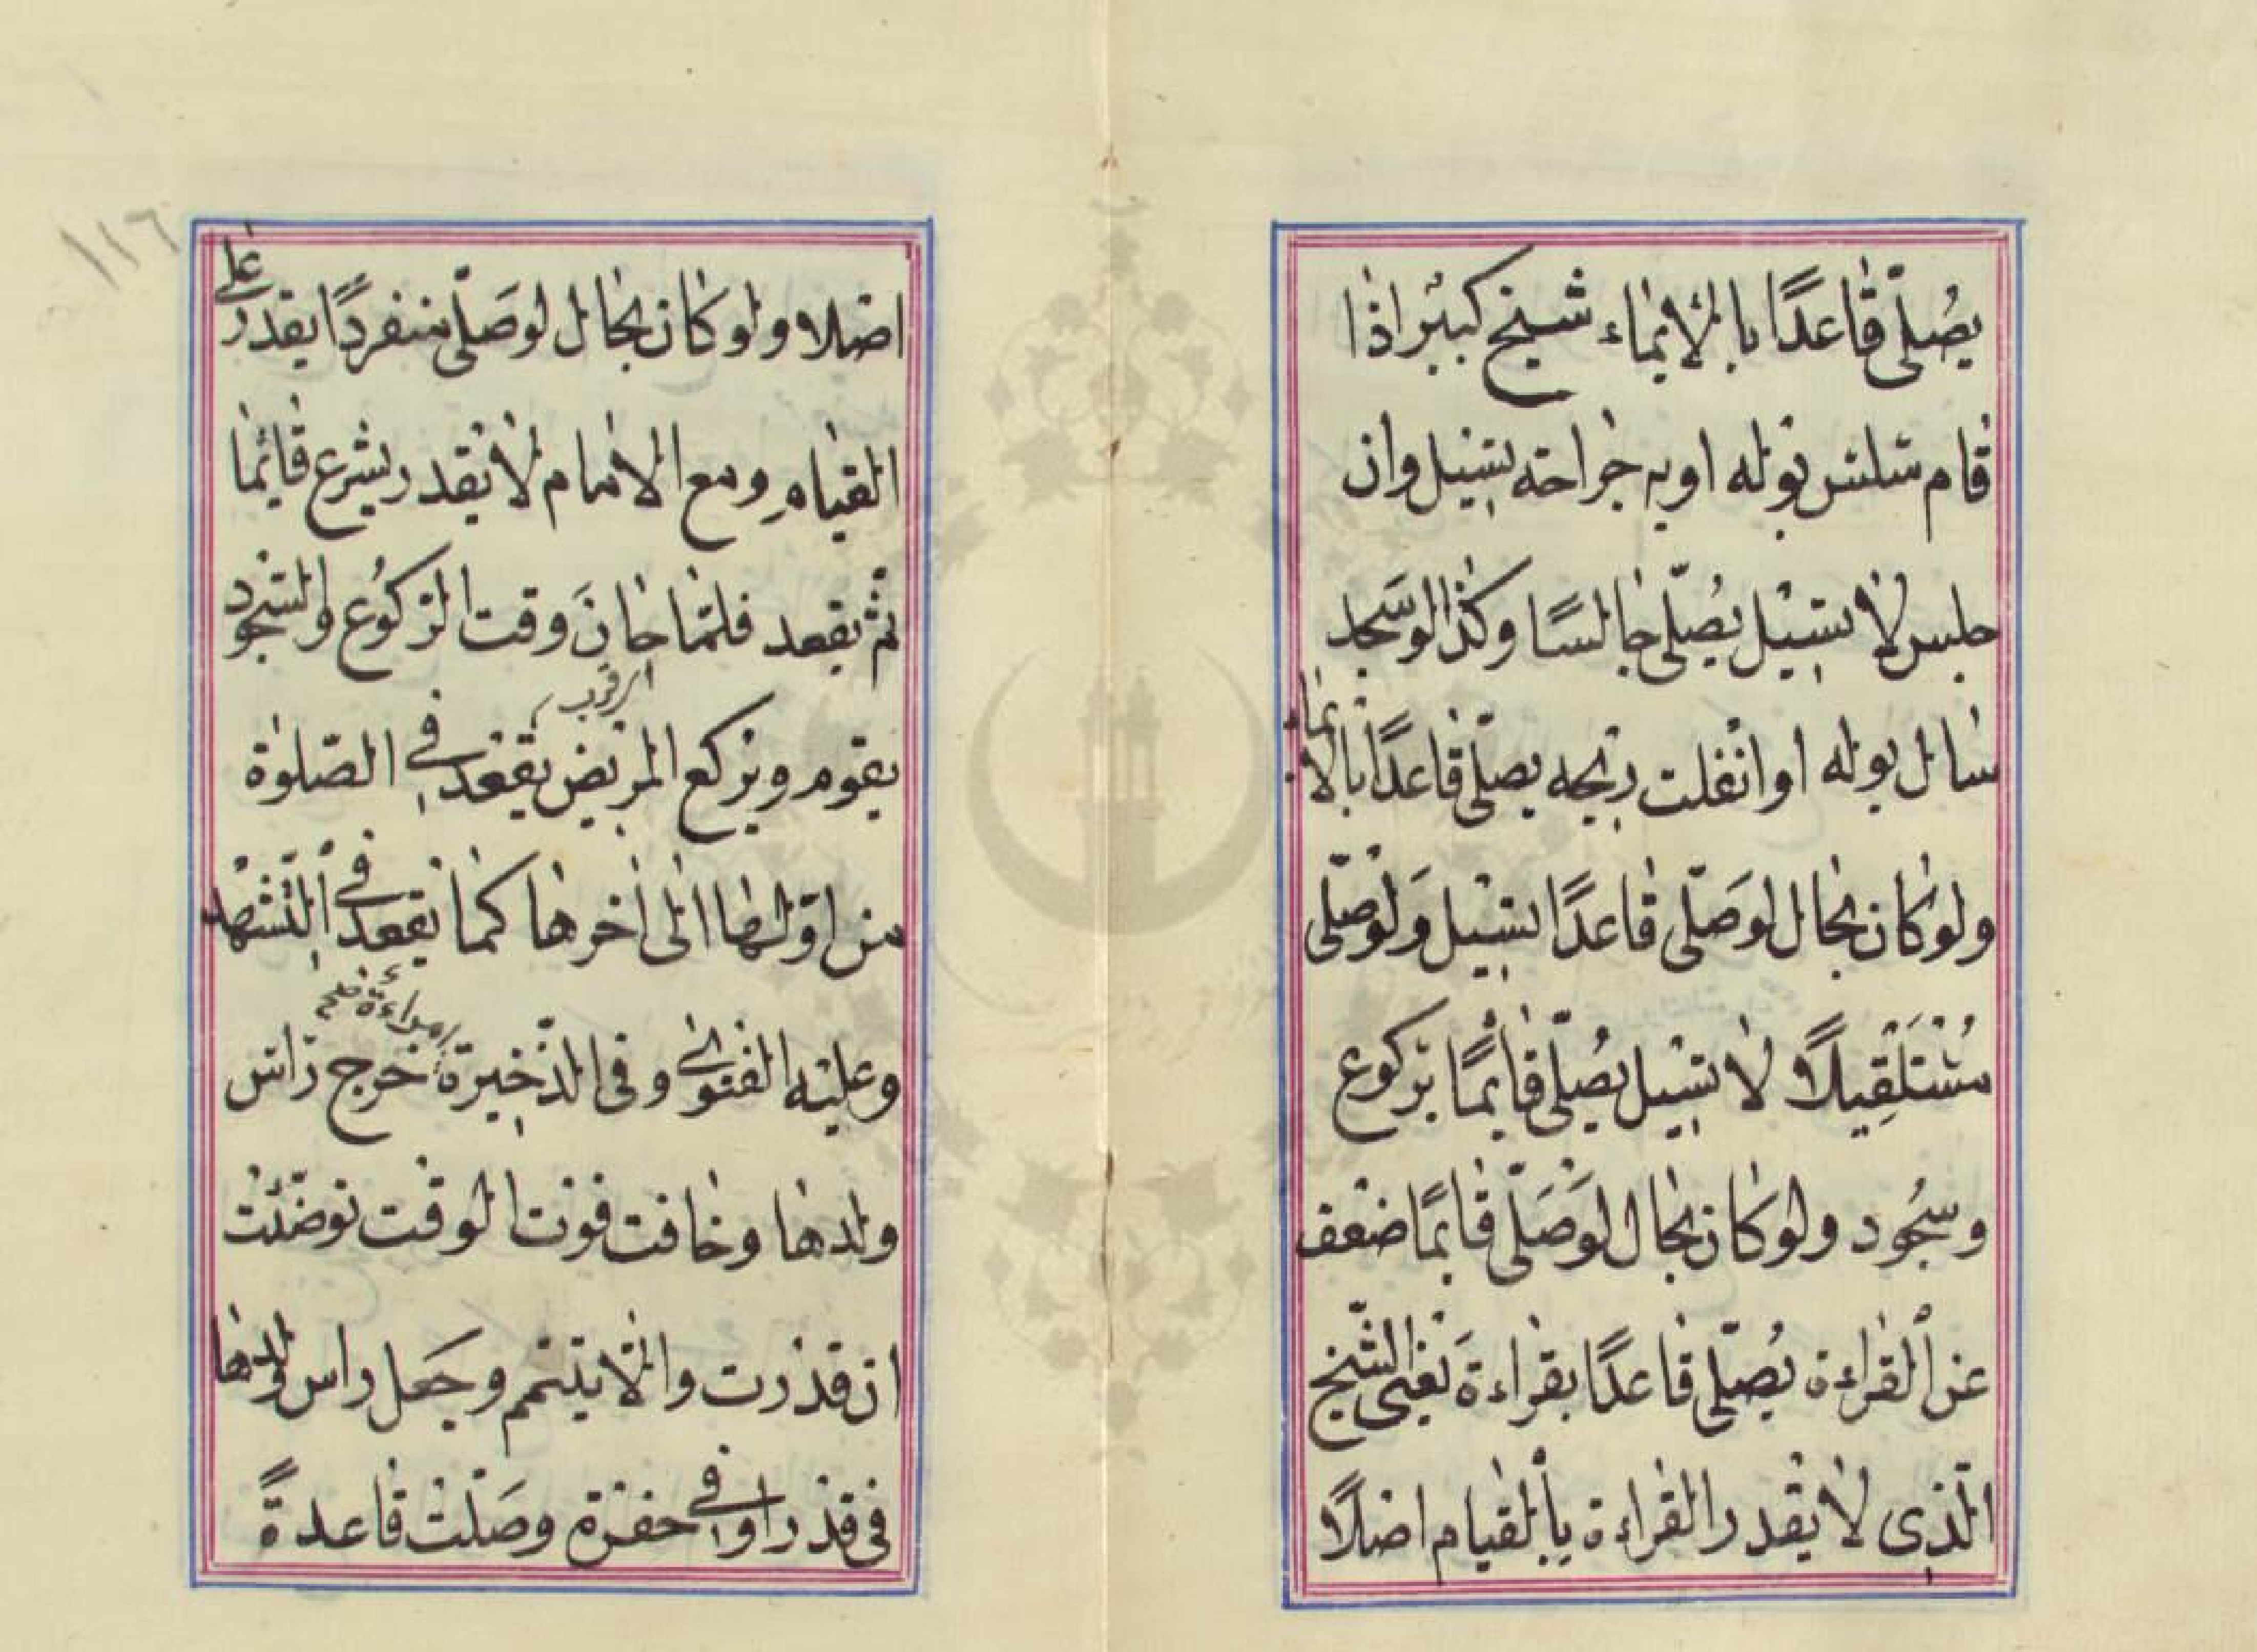 يصلّى قاعدًا بالايماء شيخ كبير اذا
قام سلس بوله او به جراحته يسيل وان
جلس لا يسيل يصلّى جالسًا وكذا لو سجد
سائل بوله او انفلت ريحه يصلّى قاعدًا بالايماء
ولو كان بحال لو صلّى قاعدًا يسيل ولو صلّى
مُسْتَلْقِيلًا لا يسيل يصلّى قايمًا بركوع
وسجود ولو كان بحال لو صلّى قايمًا ضعف
عن القراءة يصلّى قاعدًا بقراءة يعنى الشيخ
الّذى لا يقدر القراءة بالقيام اصلًا
١١٦
اصلا ولو كان بحال لو صلّى منفردًا يقدر على
القيام ومع الامام لا يقدر يشرع قائما
ثم يقعد فلمّا حان وقت الركوع والسجود
اى قرب
يقوم ويركع المريض يقعد فى الصّلوة
من اوّلها الى اخرها كما يقعد فى التّشهد
وعليه الفتوى وفى الذّخيرة خرج راس
امراءة
ولدها وخافت فوت الوقت توضئت
ان قدرت والّا يتيمم وجعل راس ولدها
فى قدر او فى حفرة وصلت قاعدةً